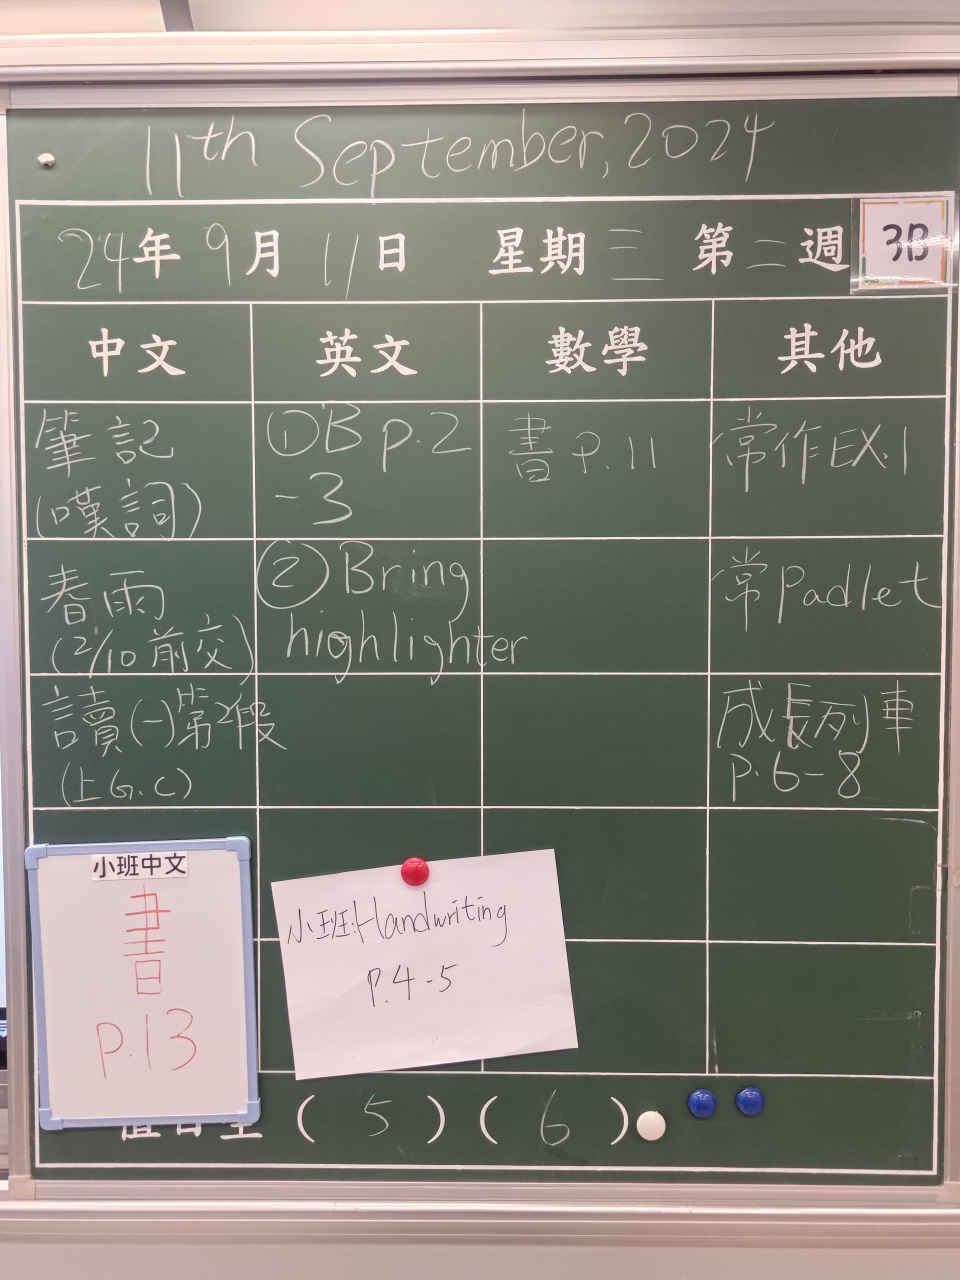 11th September, 2024
24年 9月 11日 星期三 第二週 3B
中文 英文 數學 其他
筆記
(嘆詞)
①B p.2
-3
書 P.11
常作EX.1
春雨
(2/10 前交)
② Bring
highlighter
常Padlet
讀(一)第2段
(上G.C)
成長列車
p.6-8
小班中文
書
P.13
小班:Handwriting
P.4-5
值日生 ( 5 ) ( 6 )